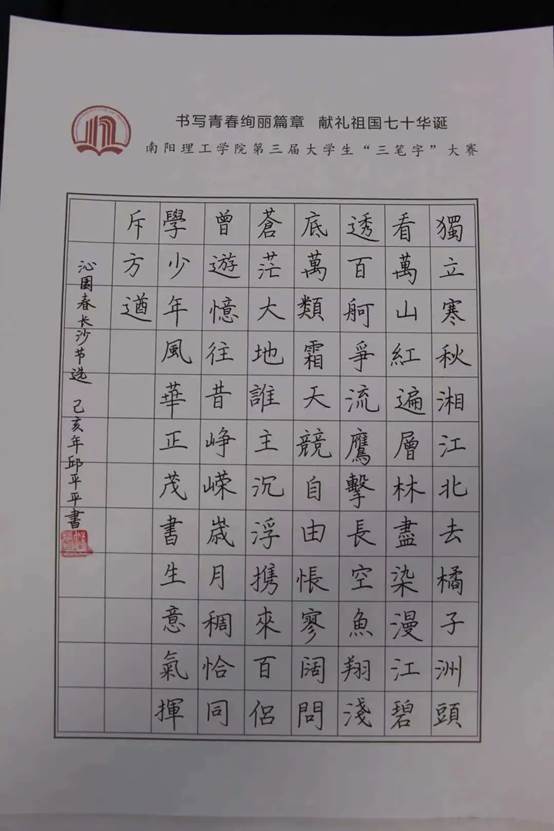 书写青春绚丽篇章 献礼祖国七十华诞
南阳理工学院第三届大学生“三笔字”大赛
獨立寒秋湘江北去橘子洲頭
看萬山紅遍層林盡染漫江碧
透百舸爭流鷹擊長空魚翔淺
底萬類霜天競自由悵寥闊問
蒼茫大地誰主沉浮攜來百侶
曾遊憶往昔崢嶸歲月稠恰同
學少年風華正茂書生意氣揮
斥方遒
沁园春长沙节选 己亥年邱平平書